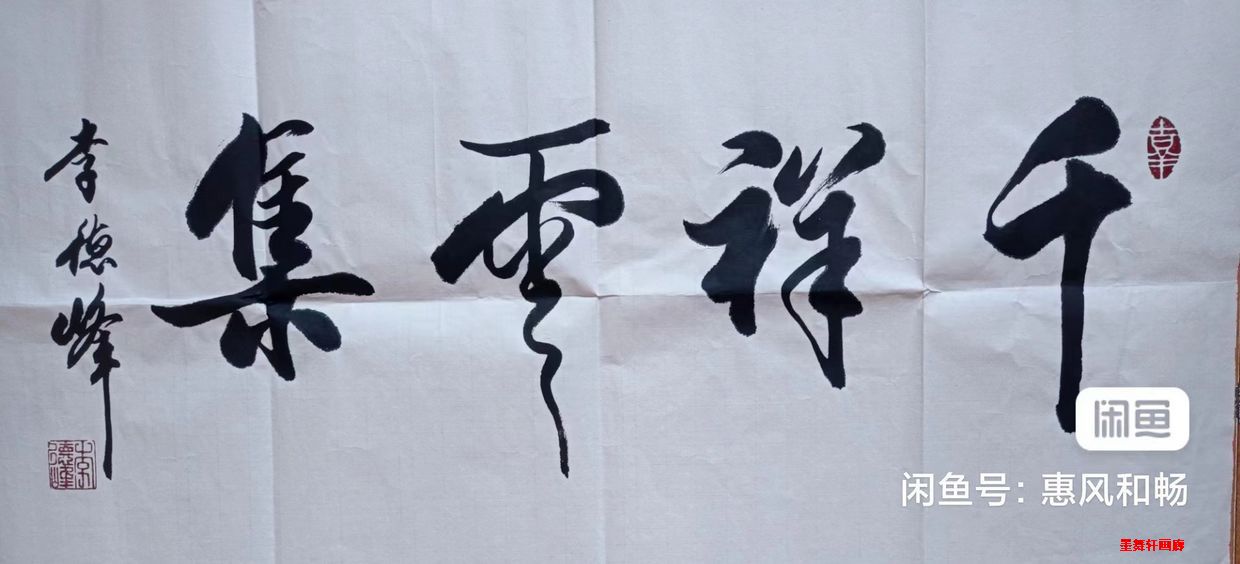 千祥雲集
李德峰
闲鱼
闲鱼号：惠风和畅
墨舞轩画廊